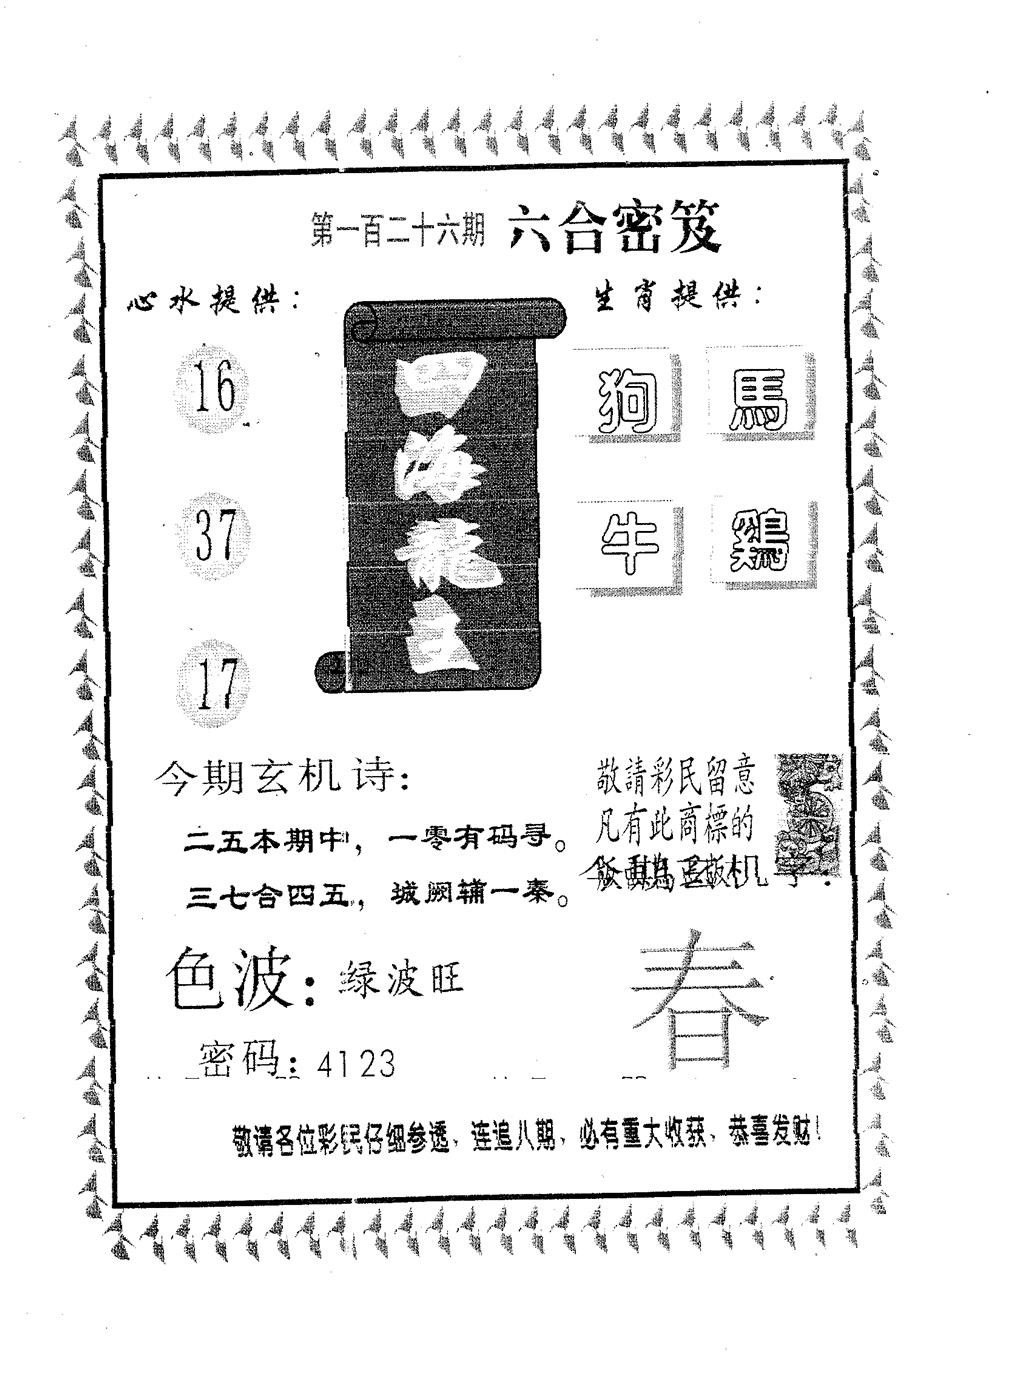 第一百二十六期 六合密笈
心水提供：
生肖提供：
16
37
17
四海龍王
狗 馬
牛 鷄
今期玄机诗：
二五本期中，一零有码寻。
三七合四五，城阙辅一秦。
敬請彩民留意
凡有此商標的
版面為正版
色波：绿波旺
春
密码：4123
敬请各位彩民仔细参透、连追八期、必有重大收获、恭喜发财！